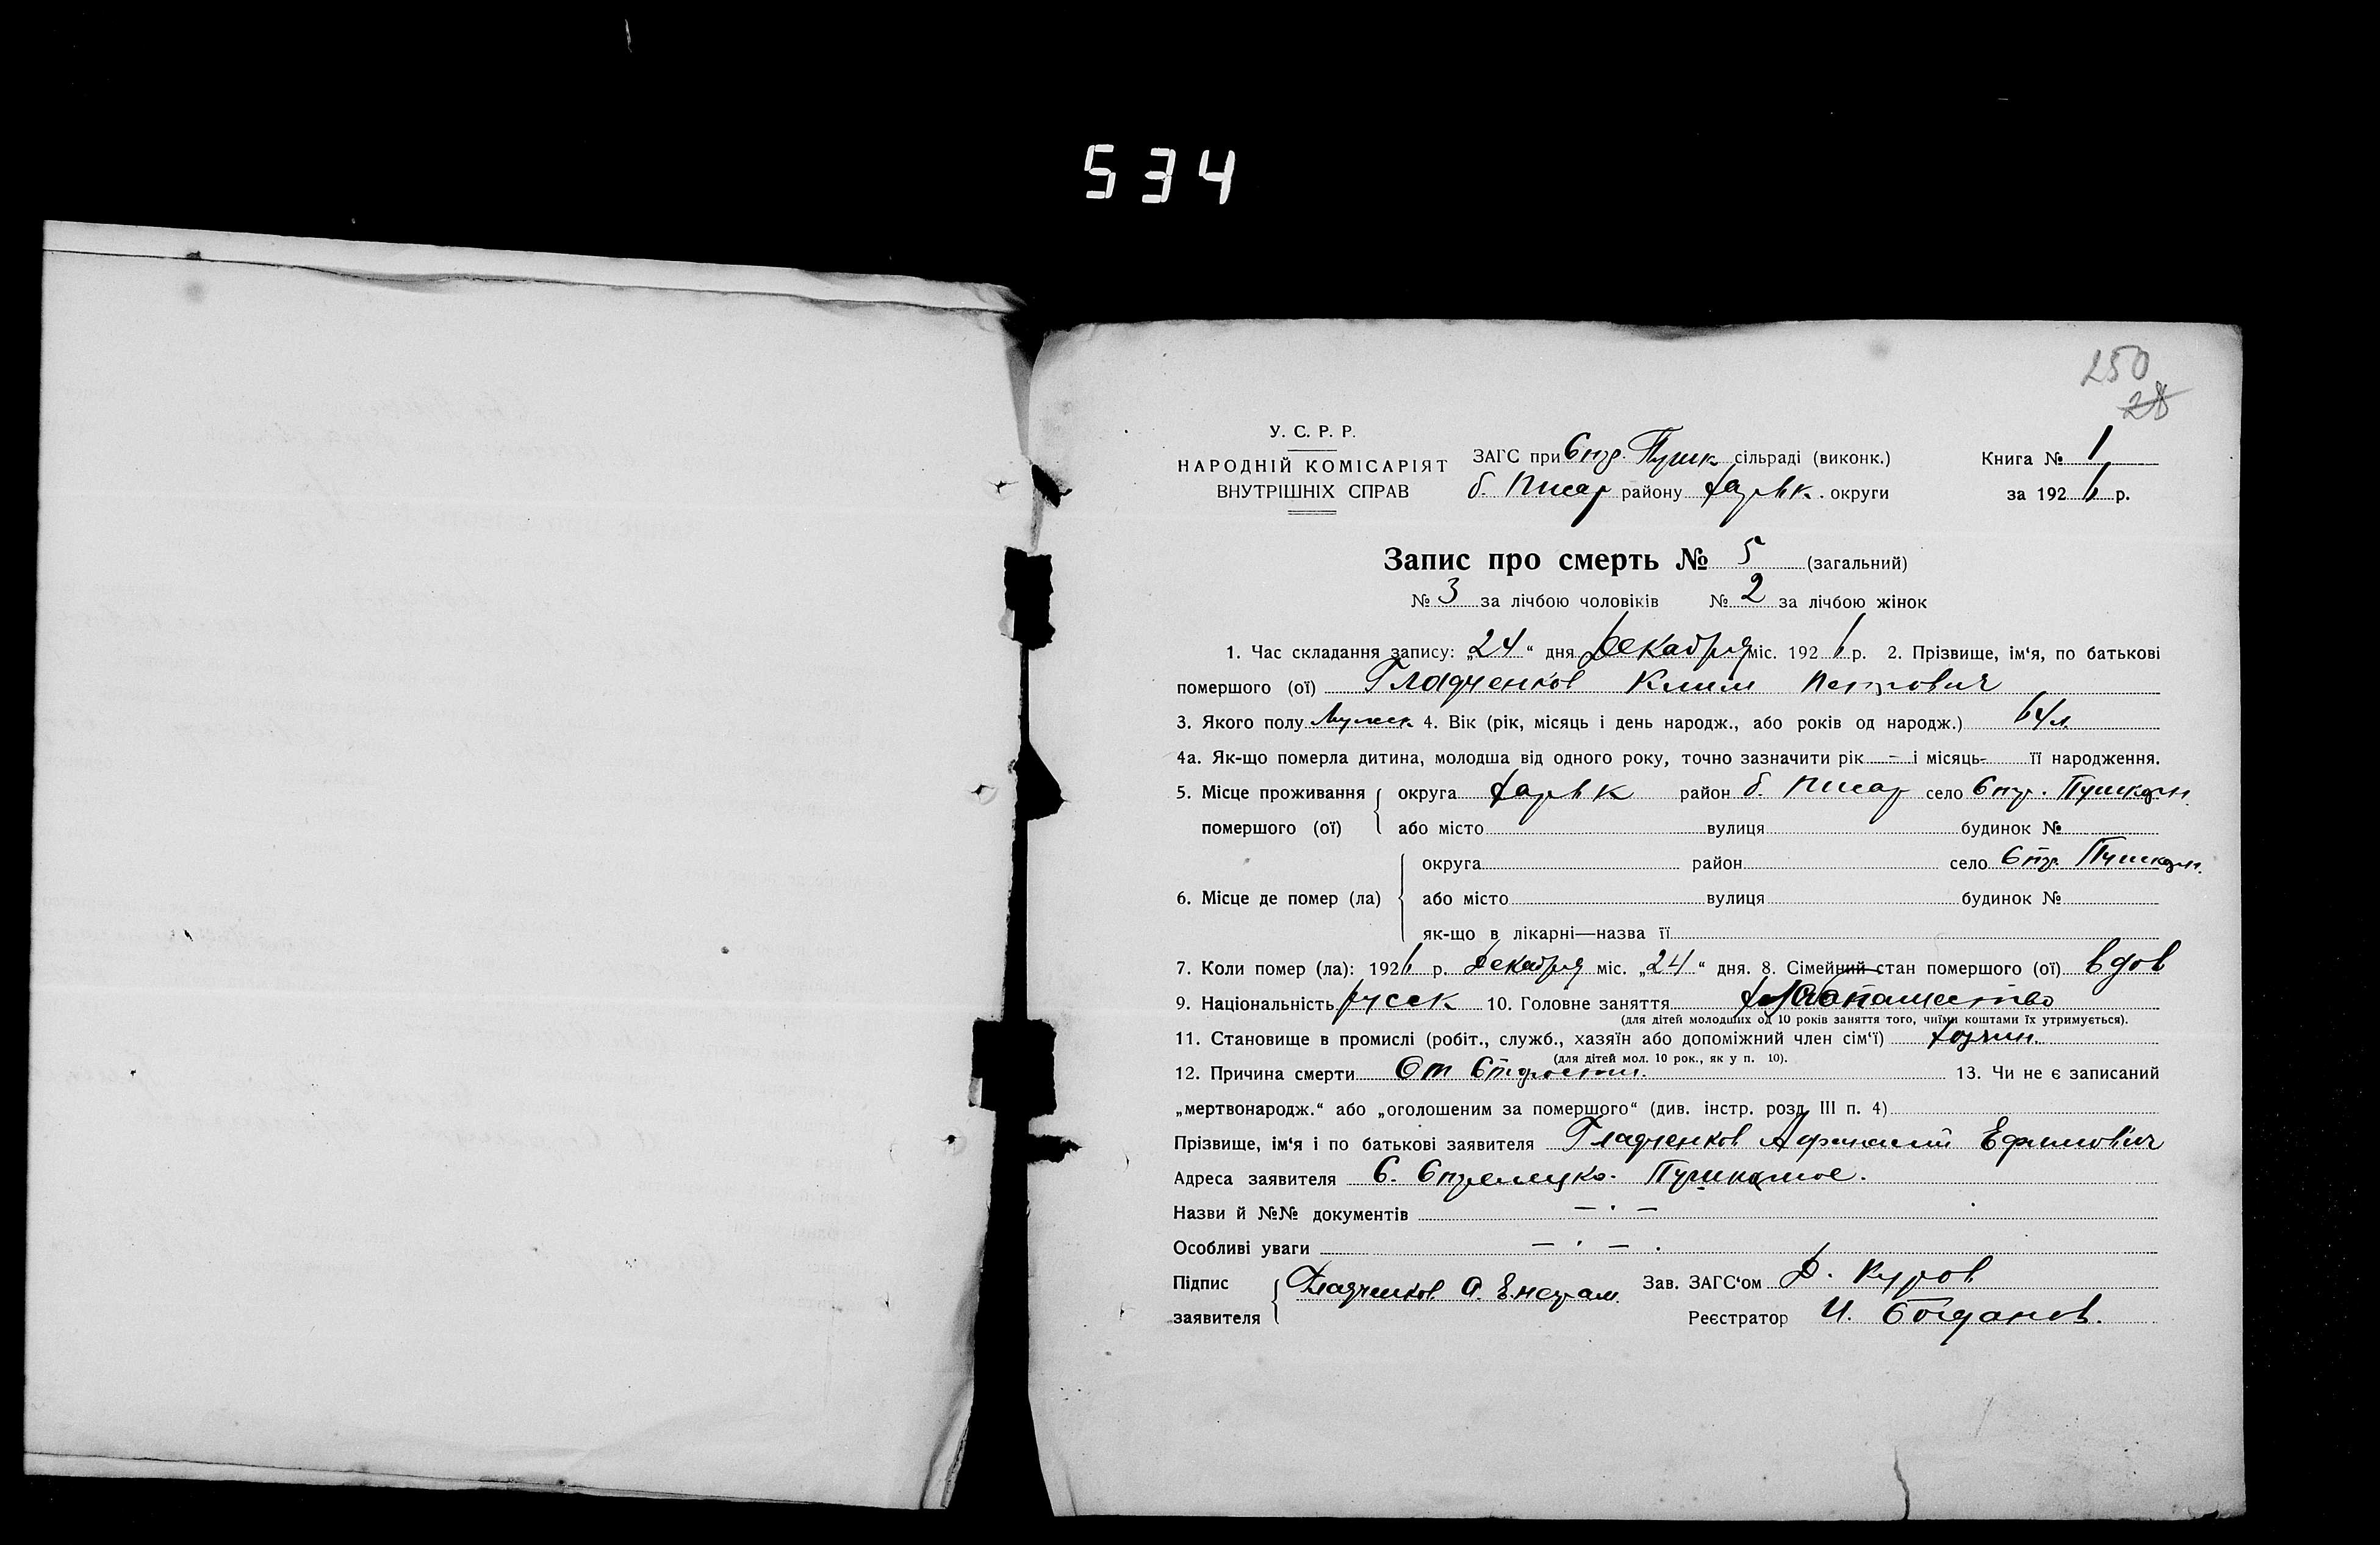 534
250
28
У. С. Р. Р.
НАРОДНІЙ КОМІСАРІЯТ
ВНУТРІШНІХ СПРАВ
ЗАГС при Стр. Пушк сільраді (виконк.)
б. Писар району Харьк. округи
Книга № 1
за 1926 р.
Запис про смерть № 5 (загальний)
№ 3 за лічбою чоловіків № 2 за лічбою жінок
1. Час складання запису: „24“ дня Декабря міс. 1926 р. 2. Прізвище, ім‘я, по батькові
помершого (ої) Гладченков Клим Петрович
3. Якого полу Мужск. 4. Вік (рік, місяць і день народж., або років од народж.) 64 л.
4а. Як-що померла дитина, молодша від одного року, точно зазначити рік - і місяць - її народження.
5. Місце проживання помершого (ої) округа Харьк район б. Писар село Стр. Пушкарн.
або місто вулиця будинок №
6. Місце де помер (ла) округа район село Стр. Пушкарн.
або місто вулиця будинок №
як-що в лікарні—назва її
7. Коли помер (ла): 1926 р. Декабря міс. „24“ дня. 8. Сімейний стан помершого (ої) вдов
9. Національність русск 10. Головне заняття Хлебопашество
(для дітей молодших од 10 років заняття того, чиїми коштами їх утримується).
11. Становище в промислі (робіт., служб., хазяїн або допоміжний член сім‘ї) Хозяин.
(для дітей мол. 10 рок., як у п. 10).
12. Причина смерти От Старости. 13. Чи не є записаний
„мертвонародж.“ або „оголошеним за помершого“ (див. інстр. розд. III п. 4)
Прізвище, ім‘я і по батькові заявителя Гладченков Афанасий Ефимович
Адреса заявителя С. Стрелецко-Пушкарное.
Назви й №№ документів — . —
Особливі уваги — . — .
Підпис заявителя Гладченков А. Неграм.
Зав. ЗАГС‘ом Д. Куров
Реєстратор И. Богданов.